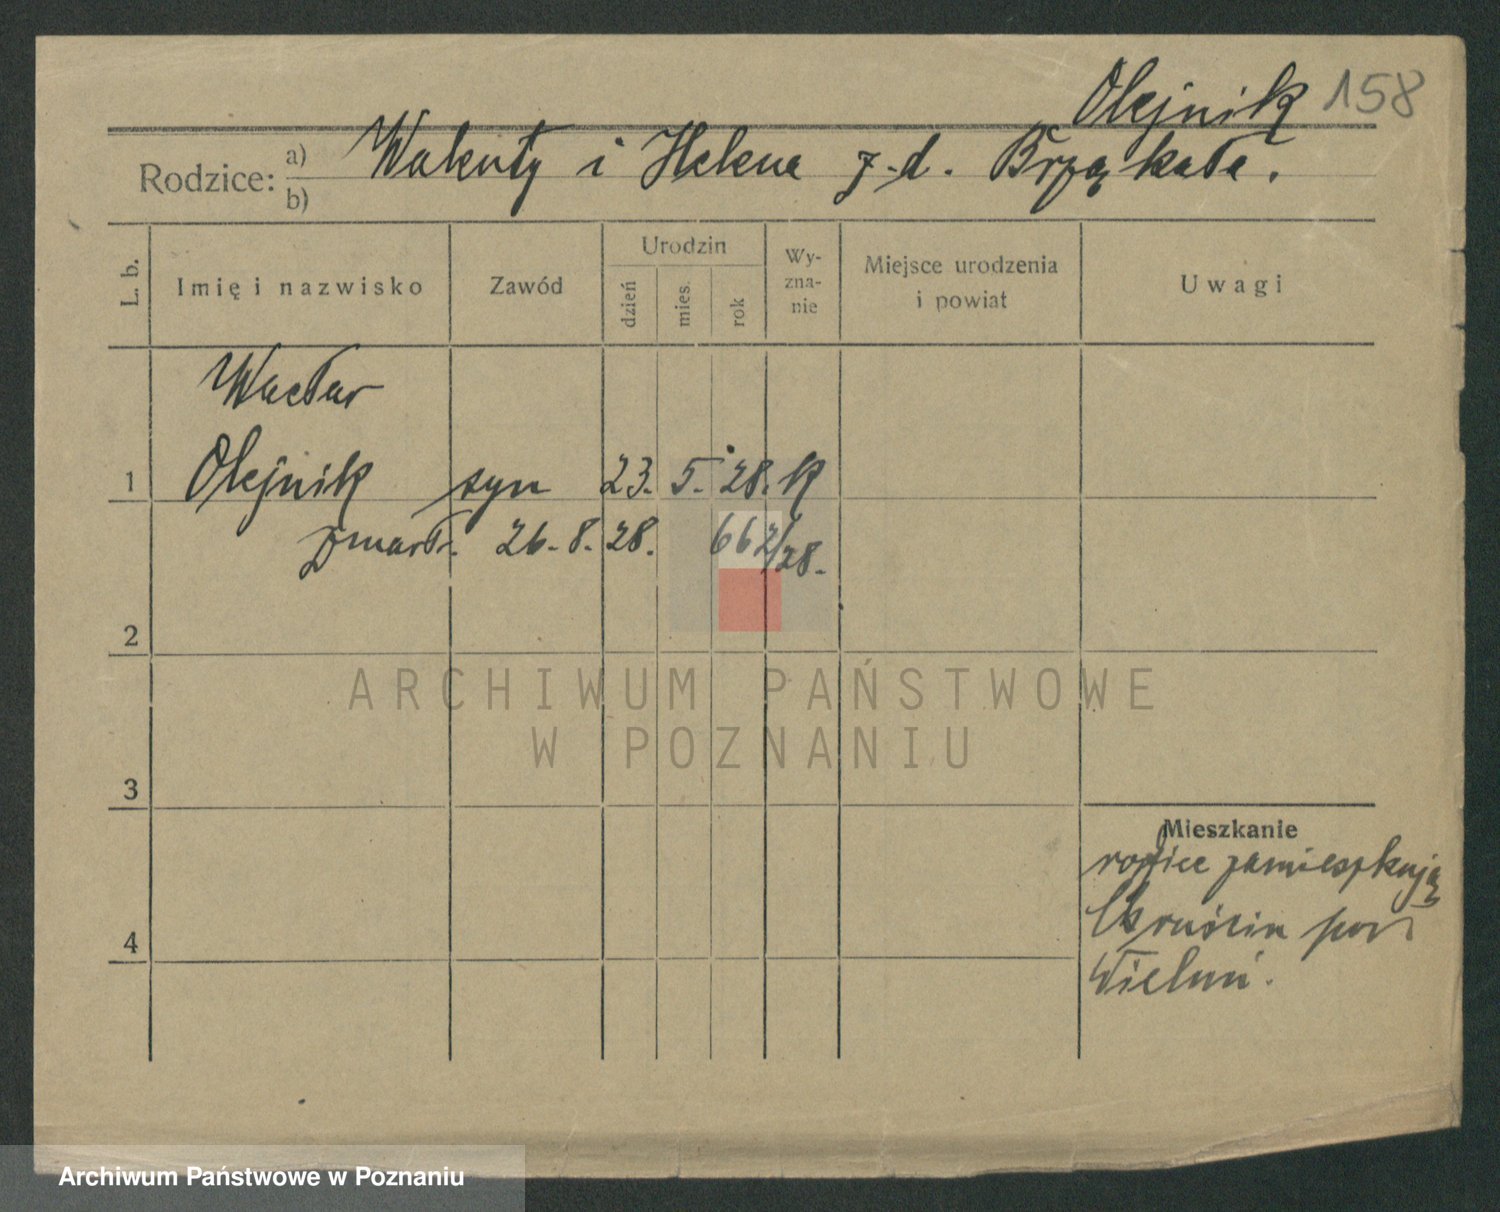 Olejnik 158
Rodzice: a) Walenty i Helena z.d. Brząkała.
b)
L. b. Imię i nazwisko Zawód Urodzin dzień mies. rok Wy-zna-nie Miejsce urodzenia i powiat Uwagi
Wacław
1 Olejnik syn 23. 5. 28. k
zmarł. 26.8.28. 662/28.
2
ARCHIWUM PAŃSTWOWE
W POZNANIU
3
Mieszkanie
rodzice zamieszkują
pow
4
Wieluń.
Archiwum Państwowe w Poznaniu